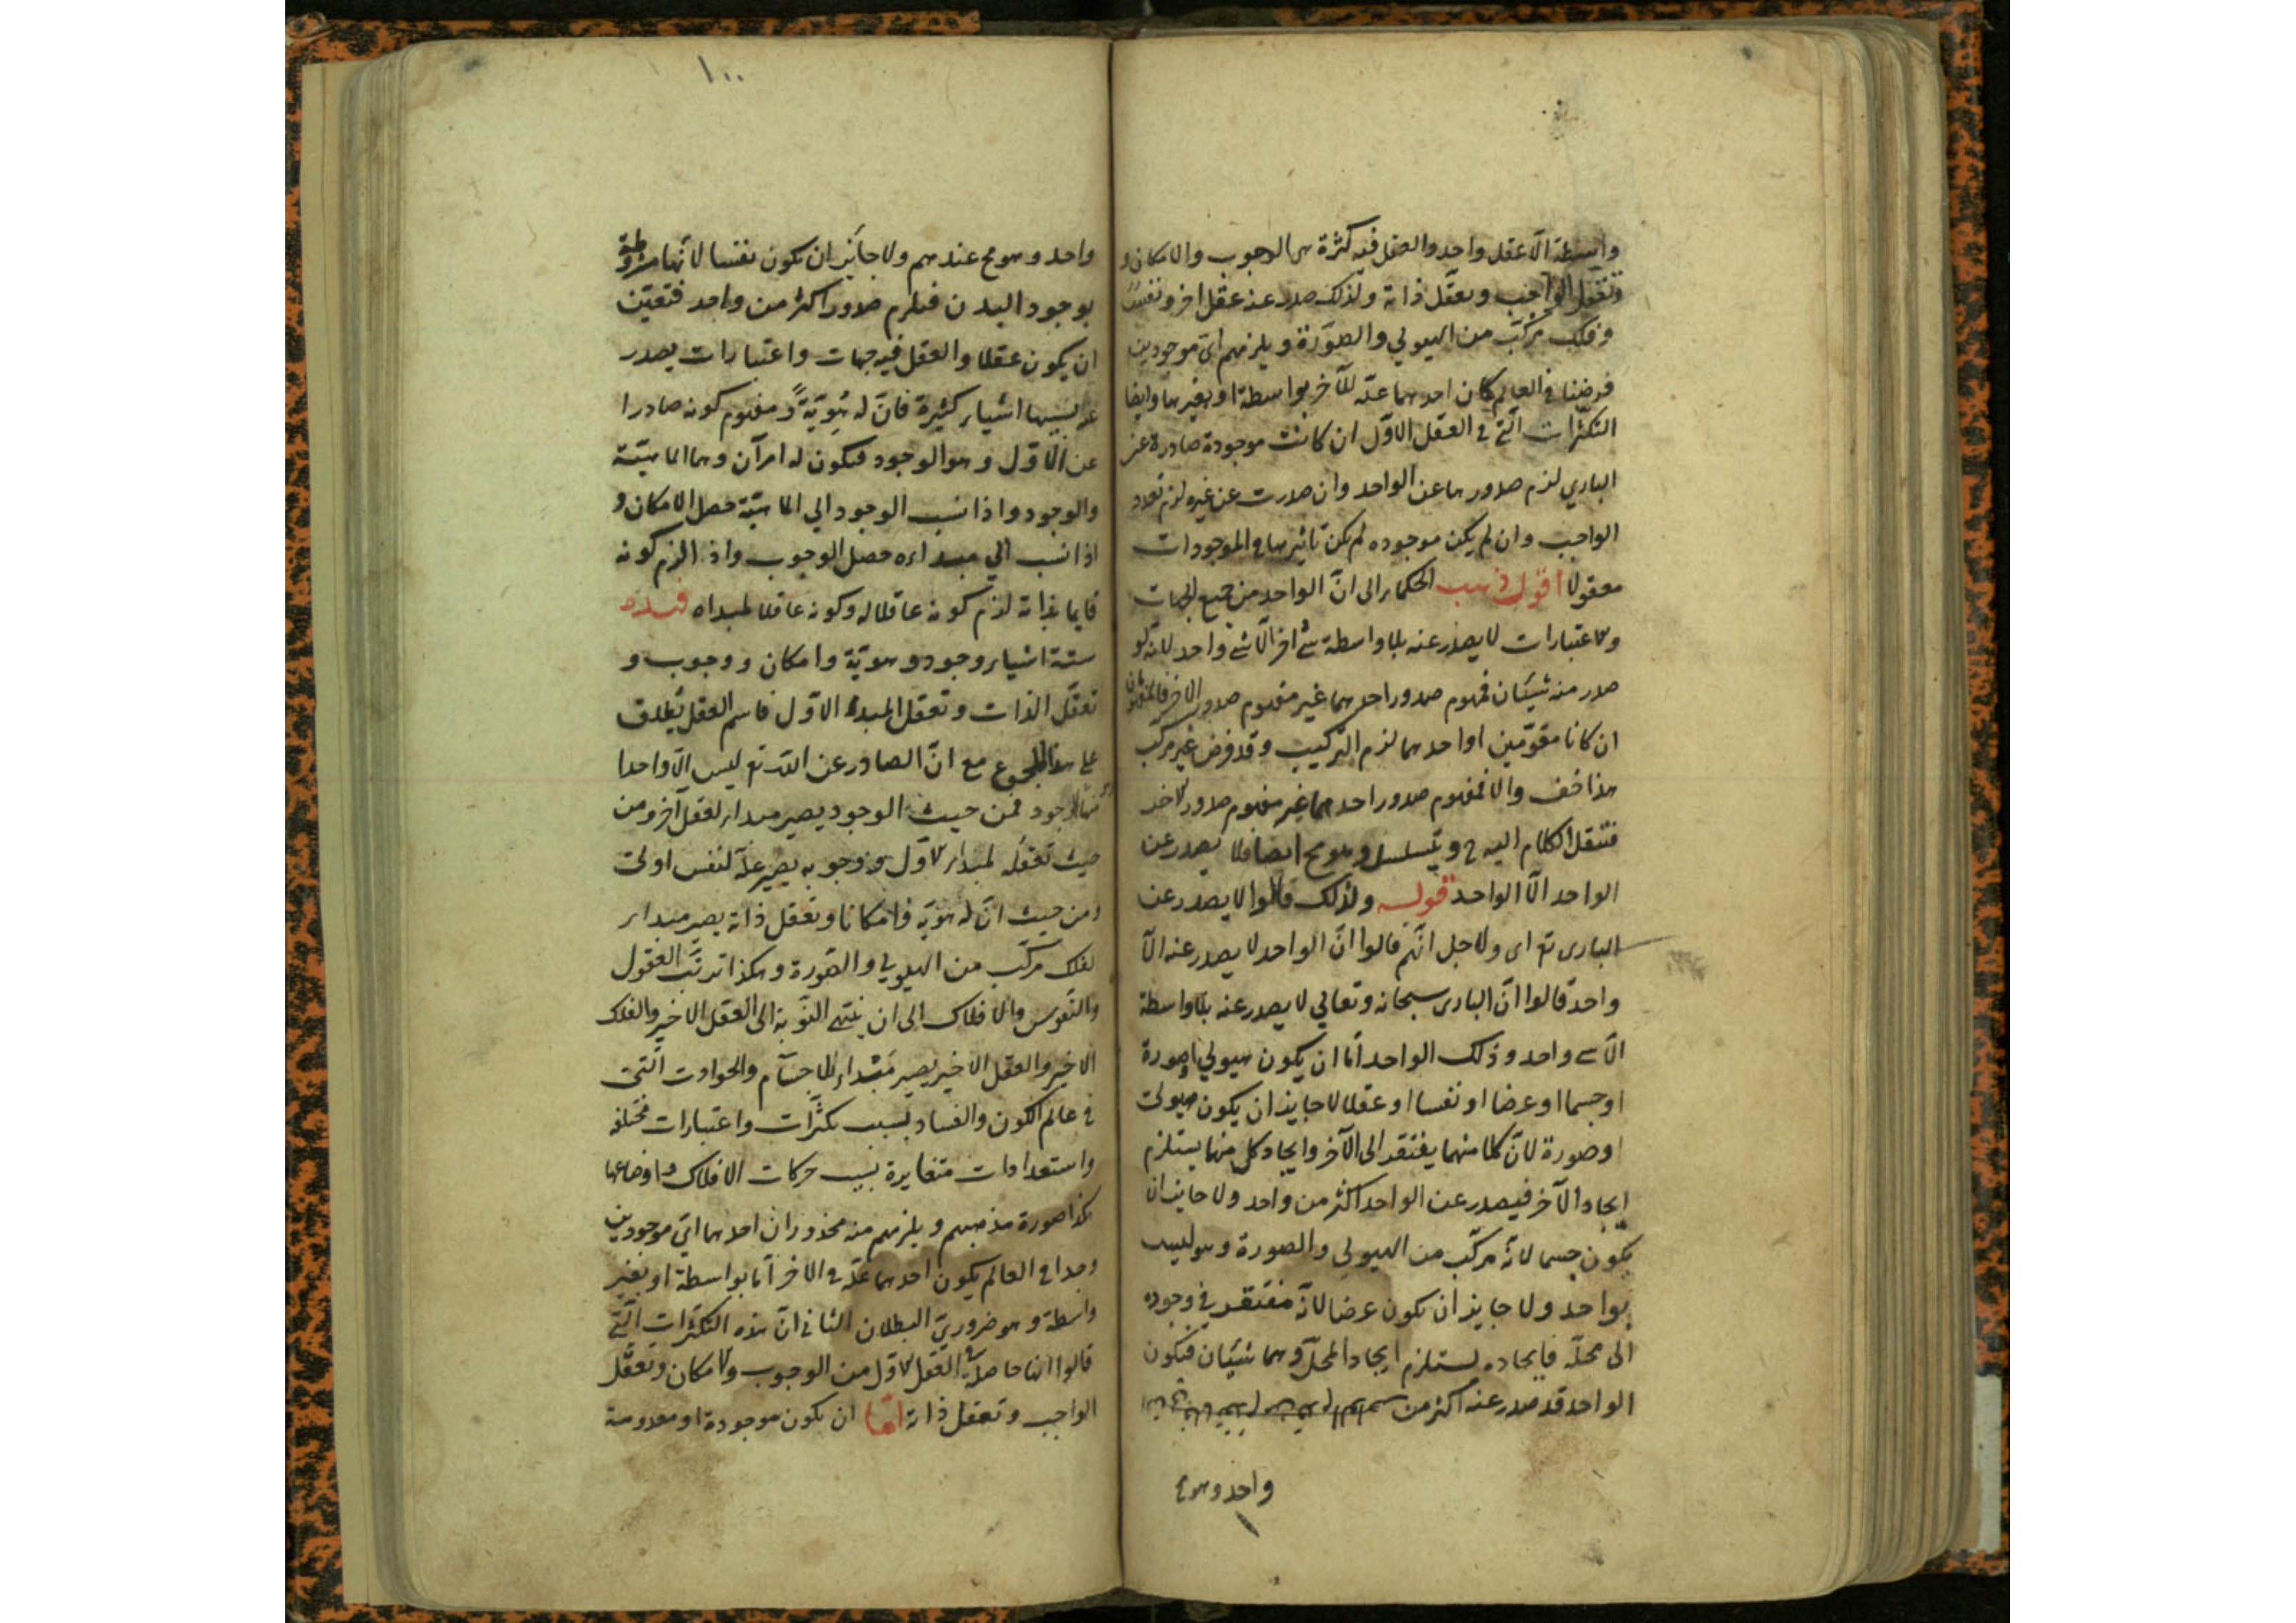 واسطة الا عقل واحد والعقل فيه كثرة هي الوجوب والامكان و
وتعقل الواجب وتعقل ذاته ولذلك صدر عنه عقل اخر ونفس
وفلك مركب من الهيولي والصورة ويلزمهم اي موجودين
فرضنا في العالم كان احدهما علة للآخر بواسطة او بغيرها وايضا
التكثرات التي في العقل الاول ان كانت موجودة صادرة عن
الباري لزم صدورها عن الواحد وان صدرت عن غيره لزم تعدد
الواجب وان لم يكن موجوده لم يكن تاثيرها في الموجودات
معقولا اقول ذهب الحكماء الى انّ الواحد من جميع الجهات
والاعتبارات لا يصدر عنه بلا واسطة شئ اخر الا شئ واحد لانه لو
صدر منه شيئان فمفهوم صدور احدهما غير مفهوم صدور الاخر فالمفهومان
ان كانا مقوّمين او احدهما لزم التركيب وقد فرض غير مركب
هذا خف والا فمفهوم صدور احدهما غير مفهوم صدور الاخر
فننقل الكلام اليه ح ويتسلسل وهو مح ايضا فلا يصدر عن
الواحد الّا الواحد قوله ولذلك قالوا لا يصدر عن
الباري تع اى ولاجل انّهم قالوا انّ الواحد لا يصدر عنه الّا
واحد قالوا انّ البارى سبحانه وتعالي لا يصدر عنه بلا واسطة
الّا شئ واحد وذلك الواحد أما ان يكون هيولي او صورة
او جسما او عرضا او نفسا او عقلا لا جايز ان يكون هيولى
او صورة لانّ كلا منهما يفتقر الى الآخر وايجاد كل منهما يستلزم
ايجاد الآخر فيصدر عن الواحد اكثر من واحد ولا جايز ان
يكون جسما لانّه مركّب من الهيولي والصورة وهو ليس
بواحد ولا جايز ان يكون عرضا لانّه مفتقر في وجوده
الى محلّه فايجاده يستلزم ايجاد المحلّ وهما شيئان فيكون
الواحد قد صدر عنه اكثر من
واحد وهو مح
١٠٠
واحد وهو مح عندهم ولا جائز ان يكون نفسا لانّها مشروطة
بوجود البدن فيلزم صدور اكثر من واحد فتعيّن
ان يكون عقلا والعقل فيه جهات واعتبارات يصدر
عنه بسببها اشياء كثيرة فانّ له هُويّةً ومفهوم كونه صادرا
عن الاوّل وهو الوجود فيكون له امرآن وهما الماهيّة
والوجود واذا نسب الوجود الي الماهيّة حصل الامكان و
اذا نسب الي مبداءه حصل الوجوب واذا لزم كونه
قايما بذاته لزم كونه عاقلا له وكونه عاقلا لمبداه فهذه
ستة اشياء وجود وهويّة وامكان ووجوب و
تعقّل الذات وتعقل المبدء الاوّل فاسم العقل يُطلق
على هذا المجموع مع انّ الصادر عن اللّه تع ليس الّا واحدا
منها الوجود فمن حيث الوجود يصير مبداء لعقل آخر ومن
حيث تعقّله لمبداء الاوّل ووجوبه يصير علّة لنفس اولى
ومن حيث انّ له هويّة وامكانا وتعقل ذاته يصير مبداء
لفلك مركّب من الهيولي والصّورة وهكذا ترتّب العقول
والنّفوس والافلاك الى ان ينتهي النّوبة الى العقل الاخير والفلك
الاخير والعقل الاخير يصير مَبْداء للاجسام والحوادث الّتي
في عالم الكون والفساد بسبب تكثّرات واعتبارات مختلفة
واستعدادات متغايرة بسبب حركات الافلاك واوضاعها
هكذا صورة مذهبهم ويلزمهم منه محذوران احدهما ايّ موجودين
وجدا في العالم يكون احدهما علّة في الاخر أمّا بواسطة او بغير
واسطة وهو ضروريّ البطلان الثاني انّ هذه التكثّرات الّتي
قالوا انها حاصلة في العقل الاول من الوجوب والامكان وتعقّل
الواجب وتعقل ذاته امّا ان يكون موجودة او معدومة